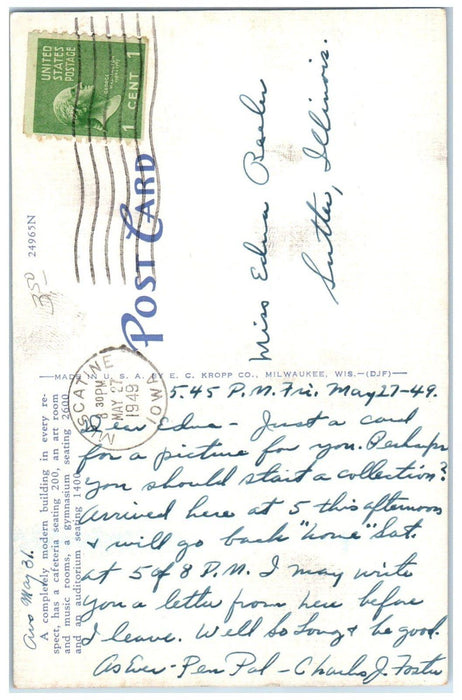 UNITED
STATES
POSTAGE
1 CENT 1
POST CARD
24965N
350
Miss Edna
Sutter, Illinois.
MADE IN U. S. A. BY E. C. KROPP CO., MILWAUKEE, WIS.—(DJF)
MUSCATINE
8 30 PM
MAY 27
1949
IOWA
A completely modern building in every re-
spect, has a cafeteria seating 200, an art room
and music rooms, a gymnasium seating 2600
and an auditorium seating 1400.
May 31.
5.45 P.M. Fri. May 27-49.
Dear Edna - Just a card
for a picture for you. Perhaps
you should start a collection?
Arrived here at 5 this afternoon
& will go back "home" Sat.
at 5 of 8 P.M. I may write
you a letter from here before
I leave. Well so long & be good.
As Ever - Pen Pal - Charles J. Foster